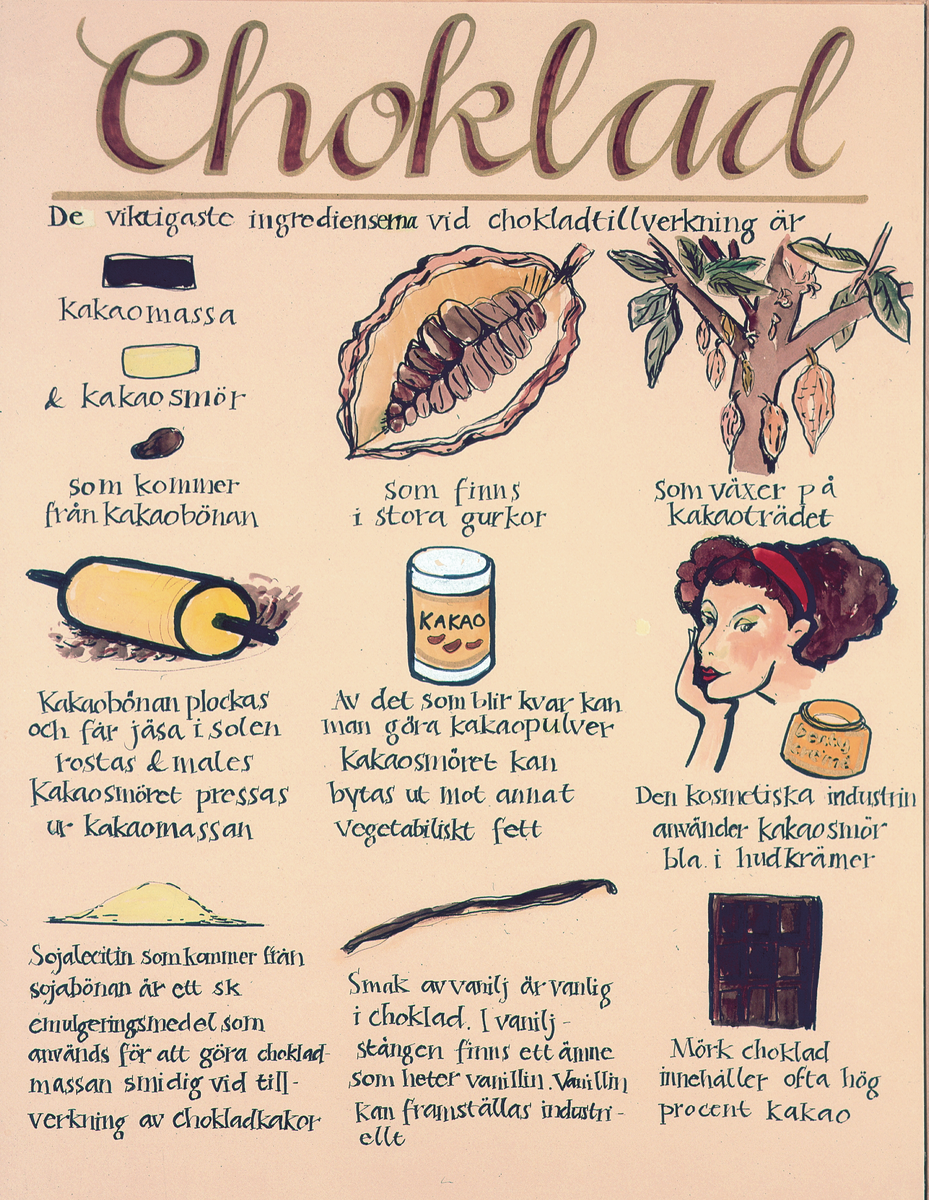 Choklad
De viktigaste ingredienserna vid chokladtillverkning är
Kakaomassa
& kakaosmör
som kommer
från kakaobönan
som finns
i stora gurkor
som växer på
kakaoträdet
Kakaobönan plockas
och får jäsa i solen
rostas & males
Kakaosmöret pressas
ur kakaomassan
KAKAO
Av det som blir kvar kan
man göra kakaopulver
Kakaosmöret kan
bytas ut mot annat
vegetabiliskt fett
Den kosmetiska industrin
använder kakaosmör
bla. i hudkrämer
Sojalecitin som kommer från
sojabönan är ett sk
emulgeringsmedel som
används för att göra choklad-
massan smidig vid till-
verkning av chokladkakor
Smak av vanilj är vanlig
i choklad. I vanilj-
stången finns ett ämne
som heter vanillin. Vanillin
kan framställas industri-
ellt
Mörk choklad
innehåller ofta hög
procent kakao